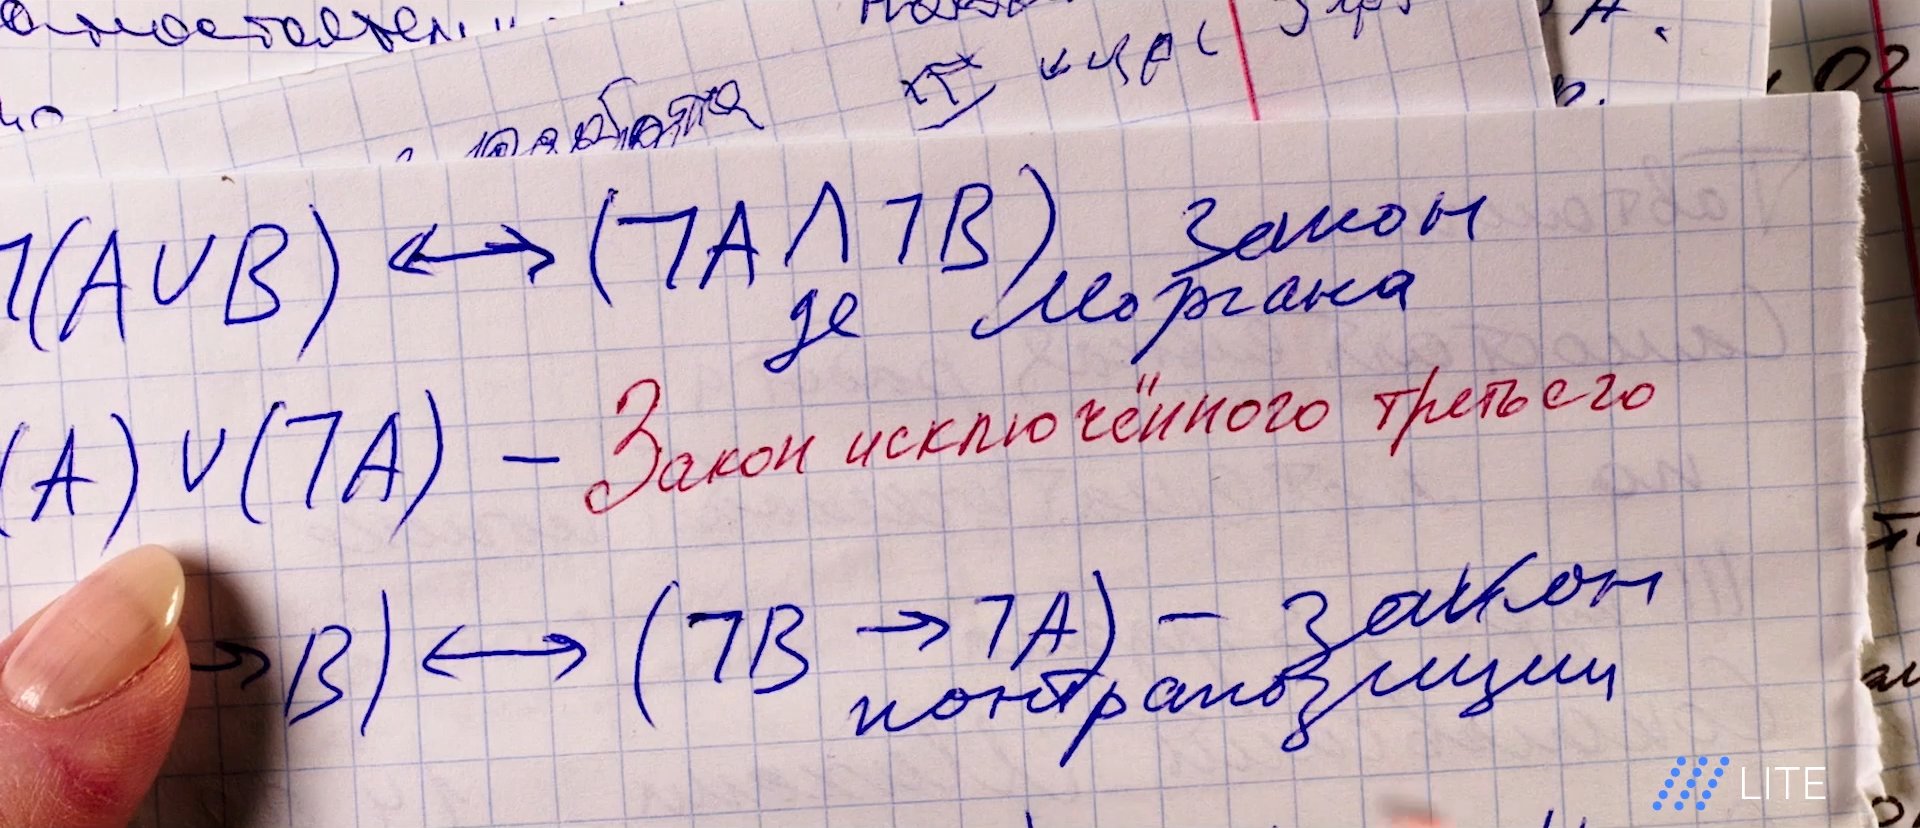 работа
курс
02
¬(A∨B) ↔ (¬A ∧ ¬B) Закон
де Моргана
(A) ∨ (¬A) – Закон исключённого третьего
→ B) ↔ (¬B → ¬A) – закон
контрапозиции
LITE